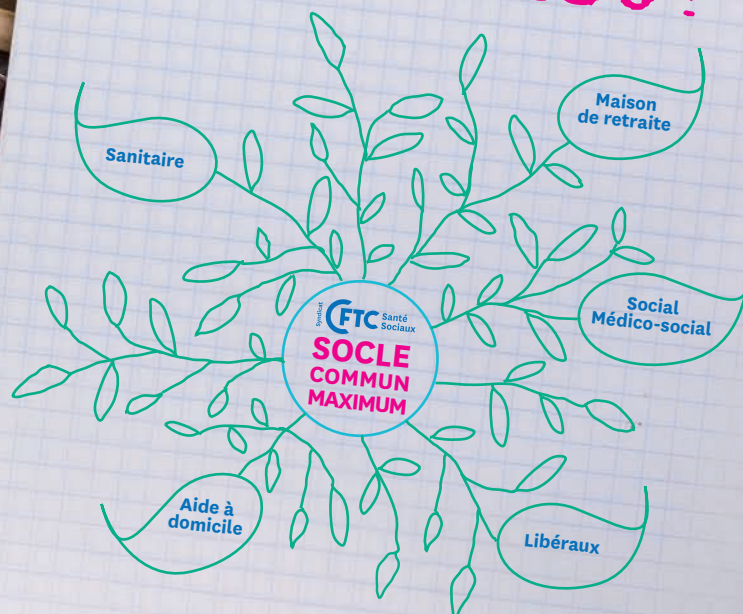 Maison
de retraite
Sanitaire
Social
Médico-social
Syndicat
CFTC Santé
Sociaux
SOCLE
COMMUN
MAXIMUM
Aide à
domicile
Libéraux